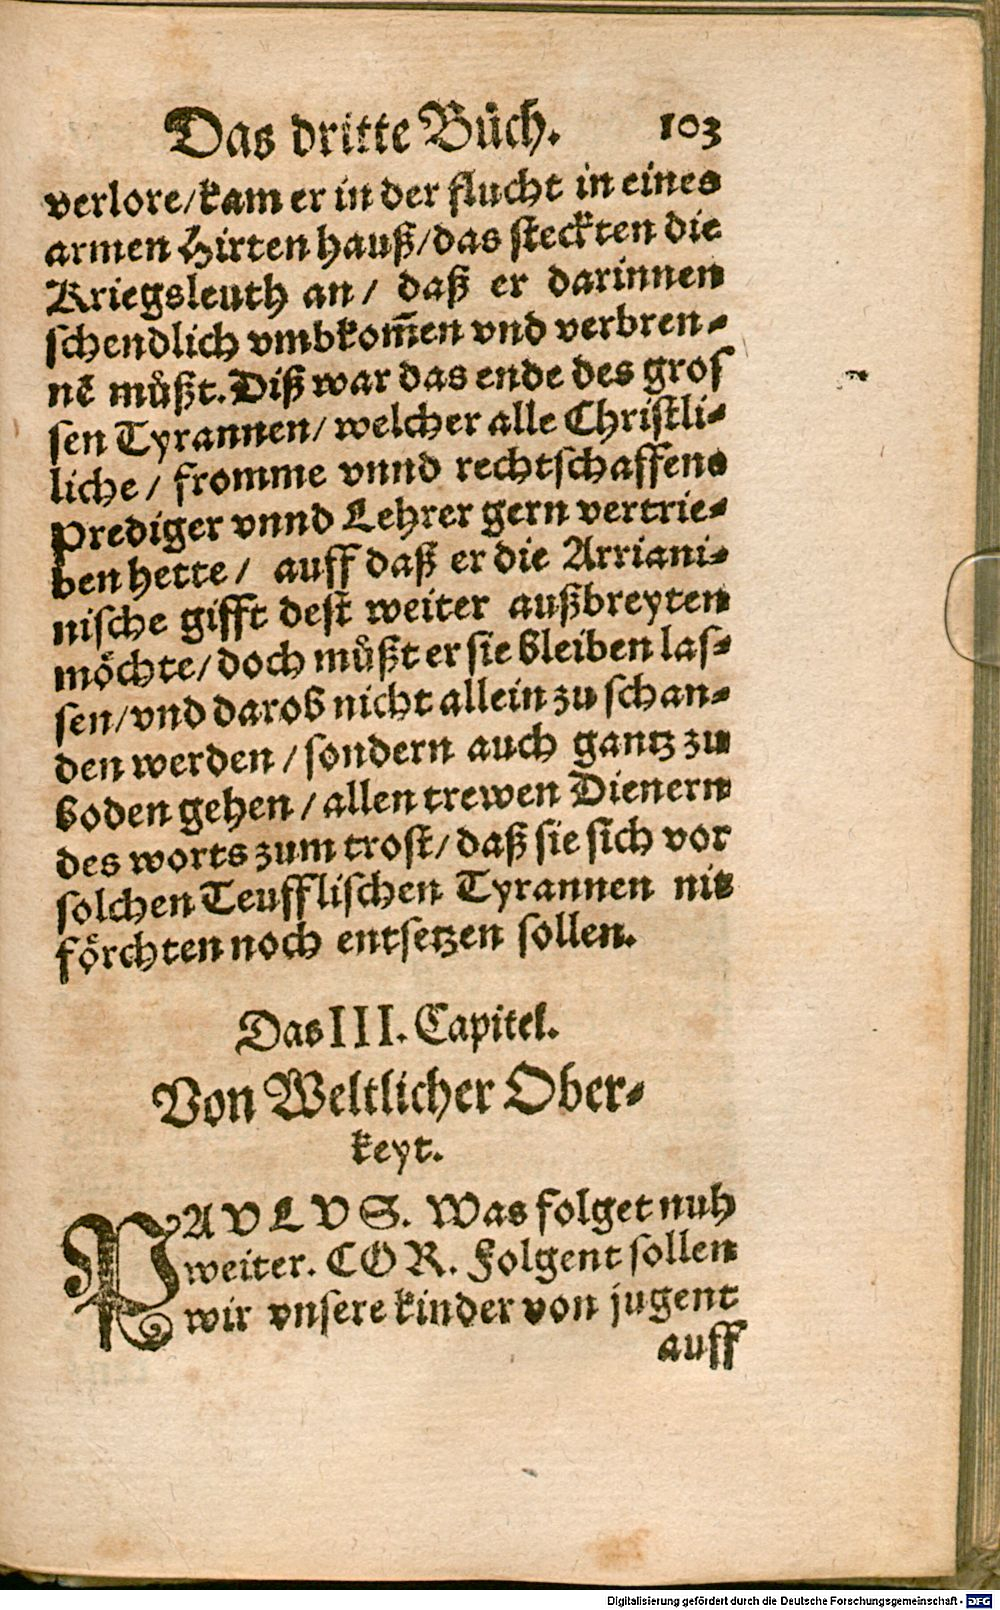 Das dritte Bůch. 103
verlore/kam er in der flucht in eines
armen Hirten hauß/das steckten die
Kriegsleuth an/ daß er darinnen
schendlich vmbkom̄en vnd verbren-
nē můßt. Diß war das ende des gros
sen Tyrannen/ welcher alle Christli-
liche/ fromme vnnd rechtschaffene
Prediger vnnd Lehrer gern vertrie-
ben hette/ auff daß er die Arriani-
nische gifft dest weiter außbreyten
möchte/ doch můßt er sie bleiben las-
sen/vnd darob nicht allein zu schan-
den werden/ sondern auch gantz zu
boden gehen/ allen trewen Dienern
des worts zum trost/ daß sie sich vor
solchen Teufflischen Tyrannen nit
förchten noch entsetzen sollen.
Das III. Capitel.
Von Weltlicher Ober-
keyt.
PAVLVS. Was folget nuh
weiter. COR. Folgent sollen
wir vnsere kinder von jugent
auff
Digitalisierung gefördert durch die Deutsche Forschungsgemeinschaft - DFG